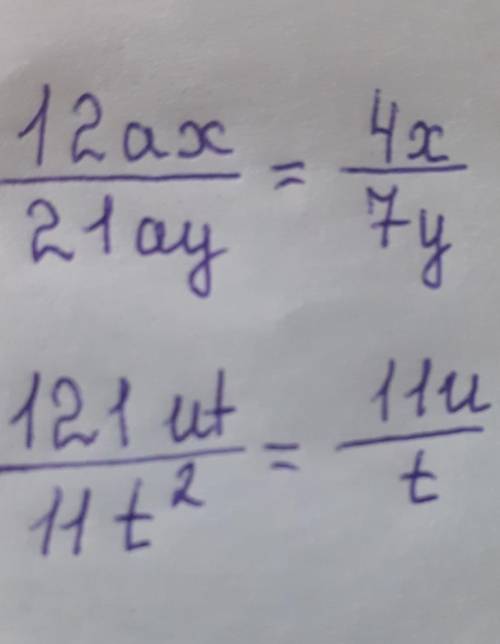 12ax/21ay = 4x/7y
121ut/11t² = 11u/t